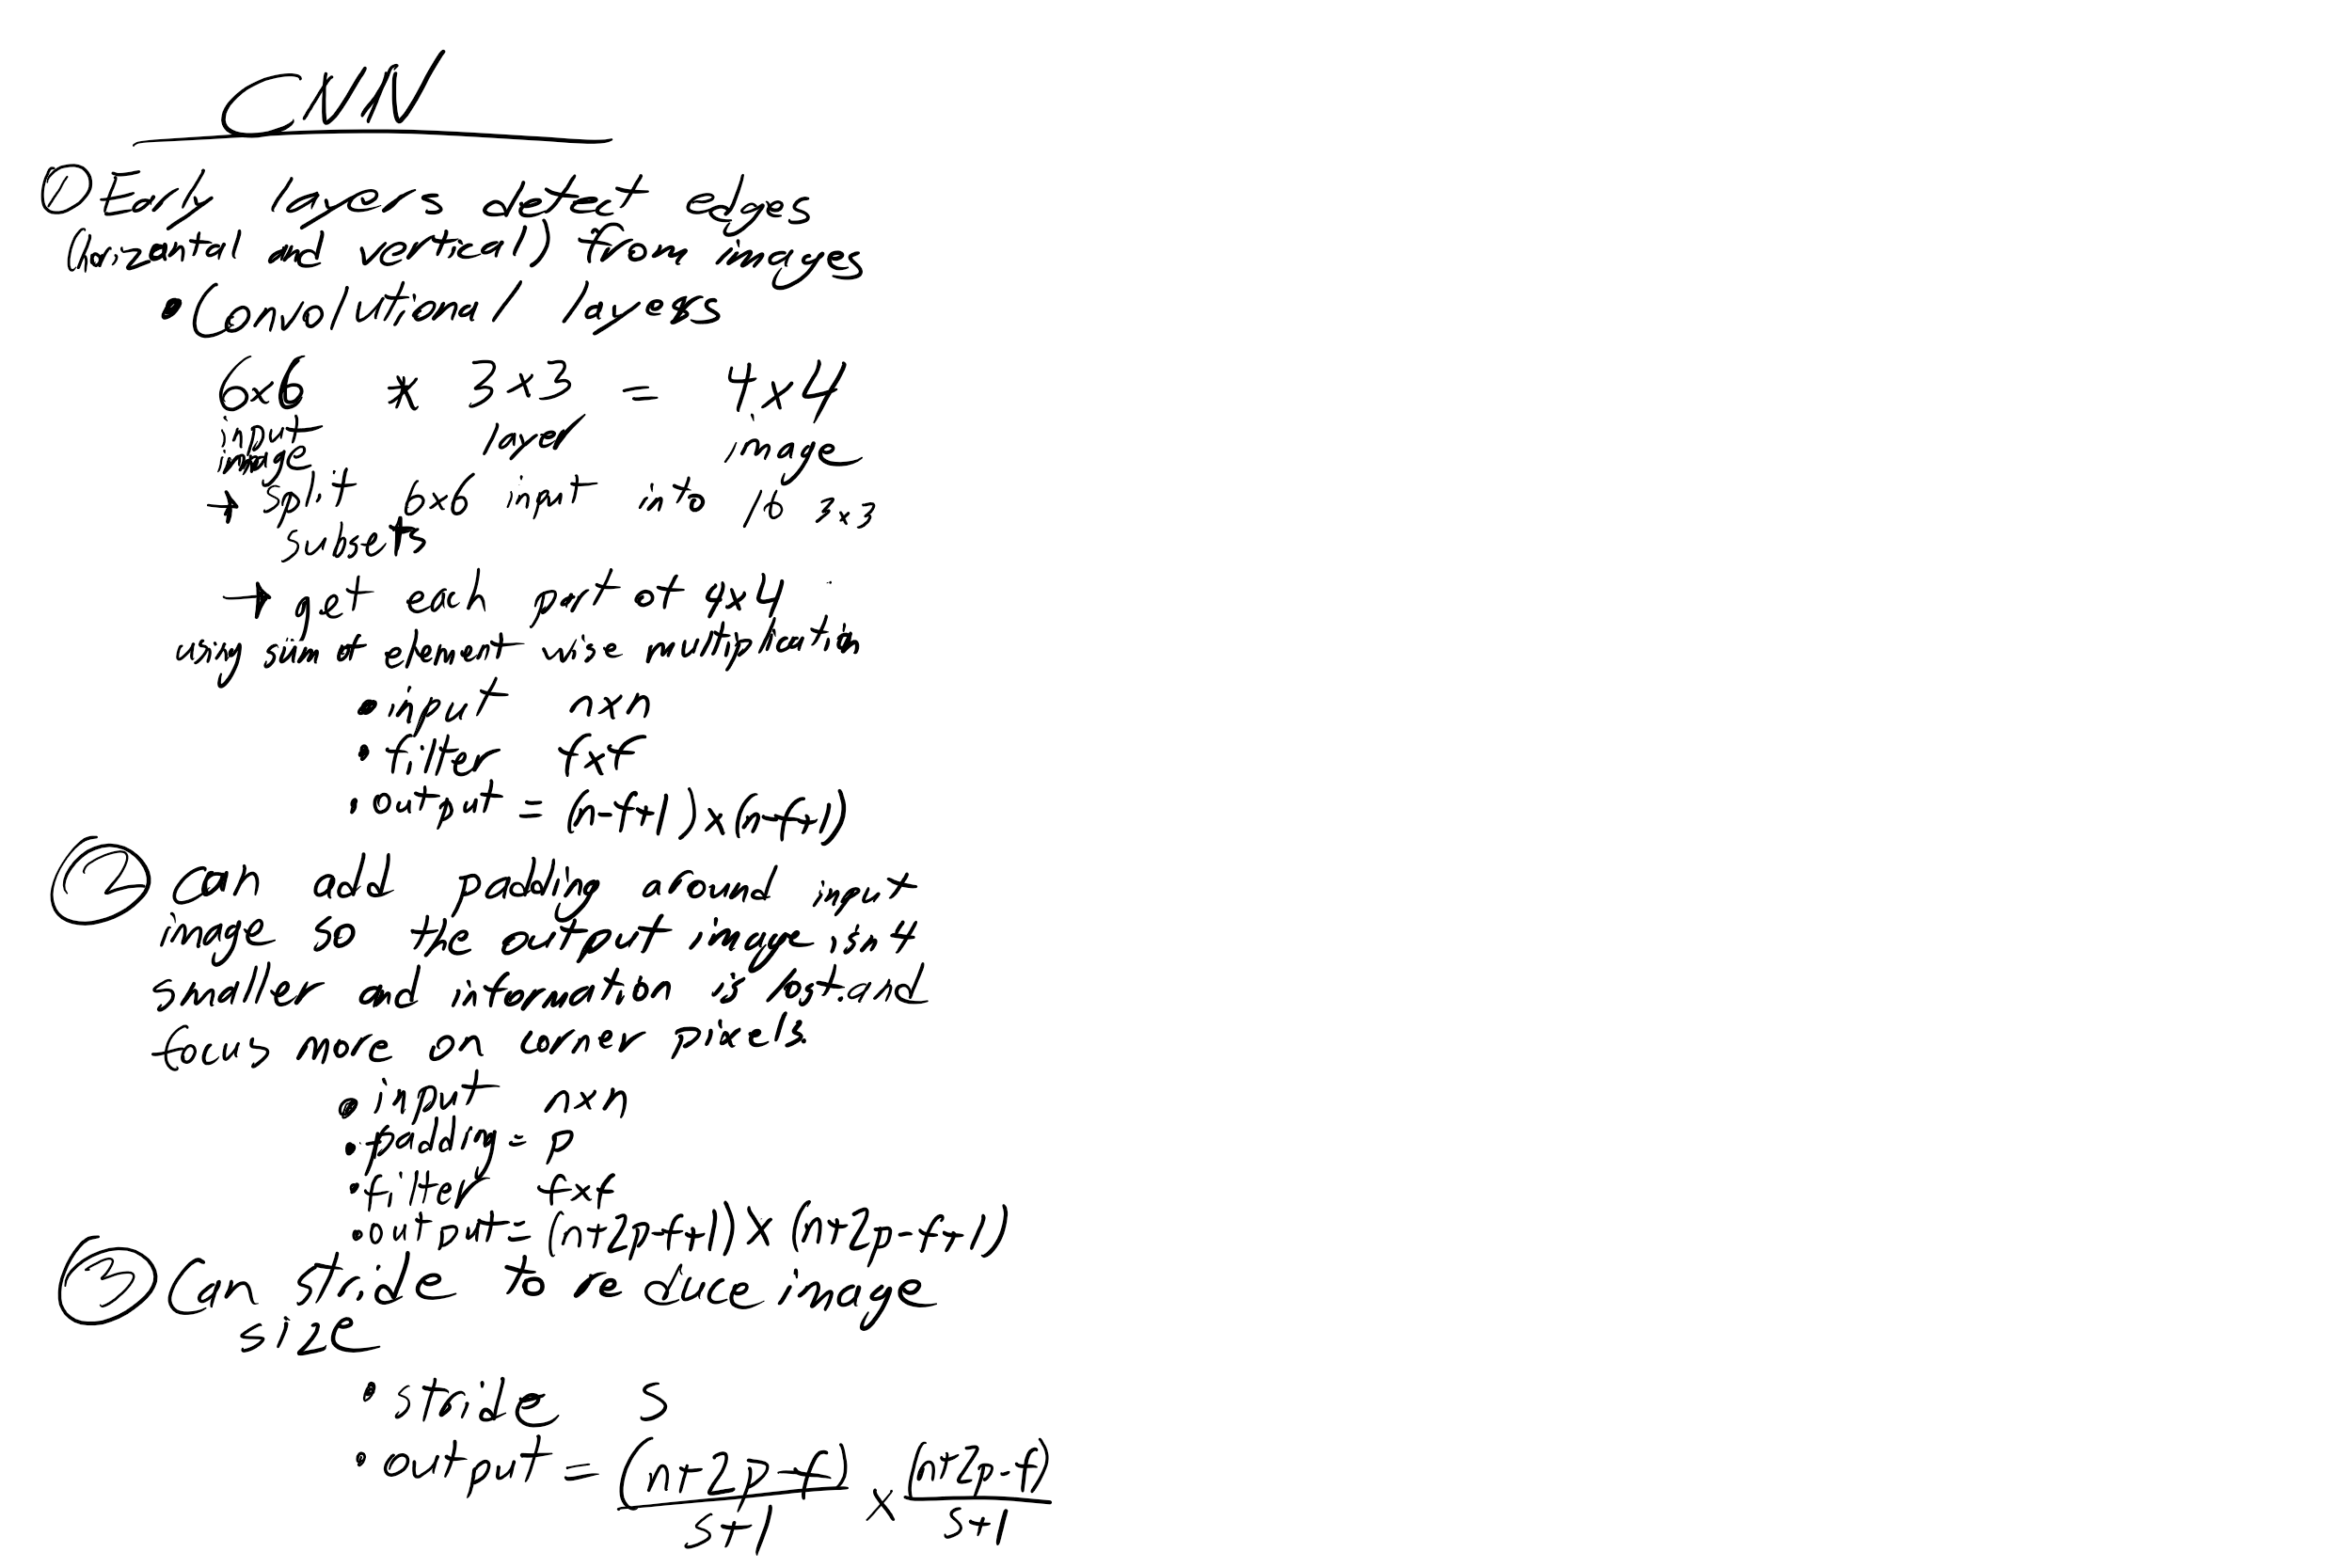 CNN
① Early layers detect edges
(horizantal and vertical) from images
• Convolutional layers
6x6 * 3x3 = 4x4
input layer image
image
→ split 6x6 input into 16 3x3
subsets
→ get each part of 4x4
using sum of element wise multiplication
• input nxn
• filter fxf
• output = (n-f+1) x (n-f+1)
② can add padding around input
image so the output image isn't
smaller and information is lost. and
focus more on corner pixels.
• input nxn
• padding = p
• filter fxf
• output = (n+2p-f+1) X (n+2p-f+1)
③ Can stride to reduce image
size
• stride s
• output = (n+2p-f)/s+1 x (n+2p-f)/s+1